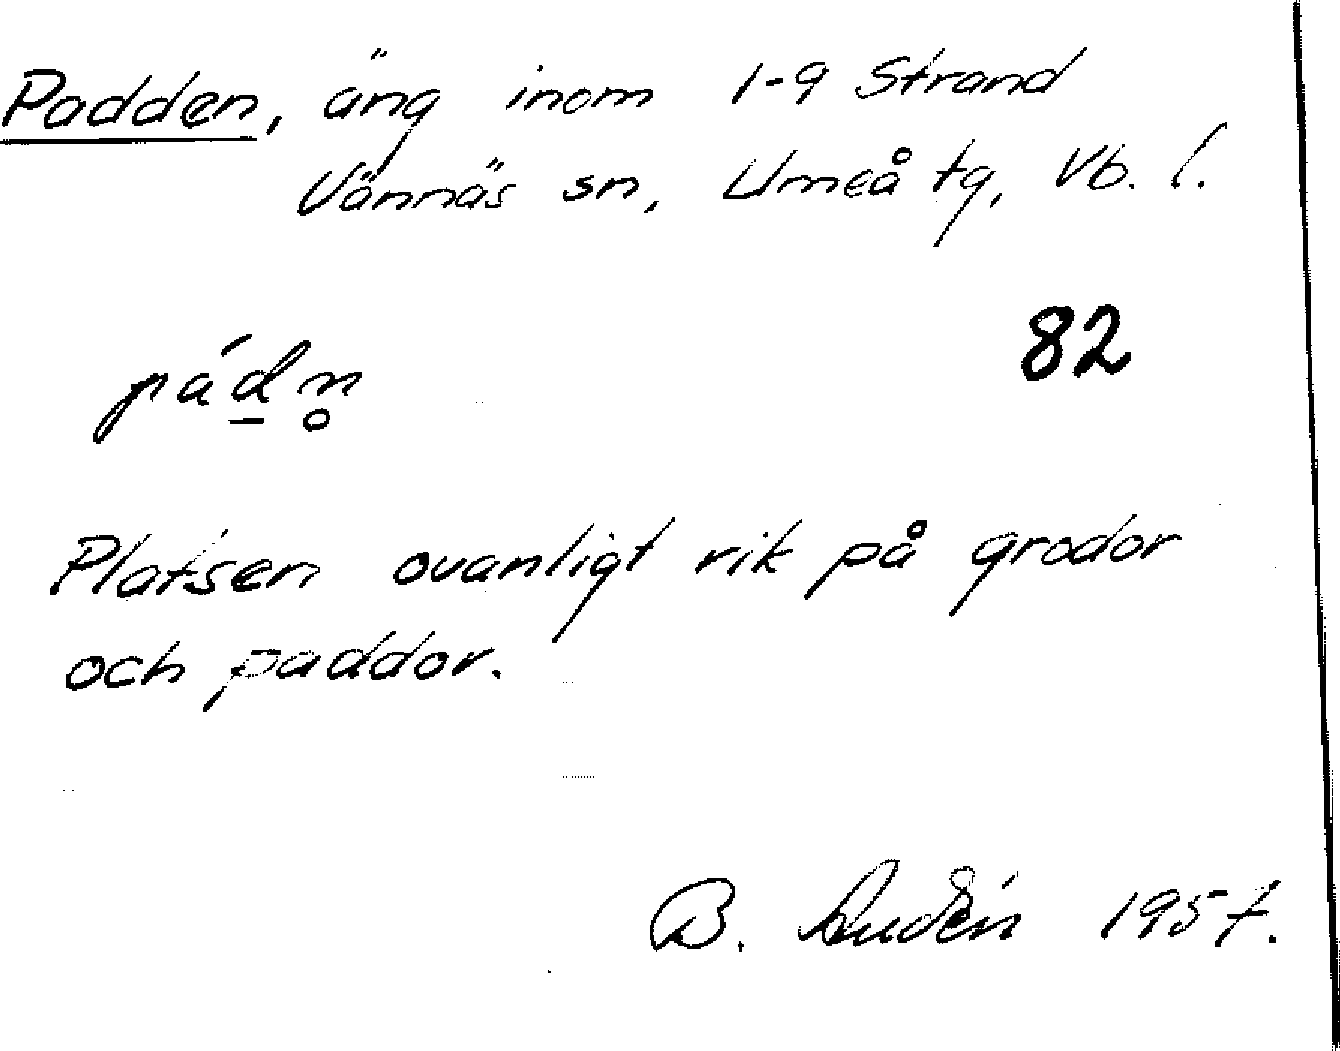 Padden, äng inom 1-9 Strand
Vännäs sn, Umeå tg, Vb. l.
82
pád̠n̥
Platsen ovanligt rik på grodor
och paddor.
B. Audén 1957.